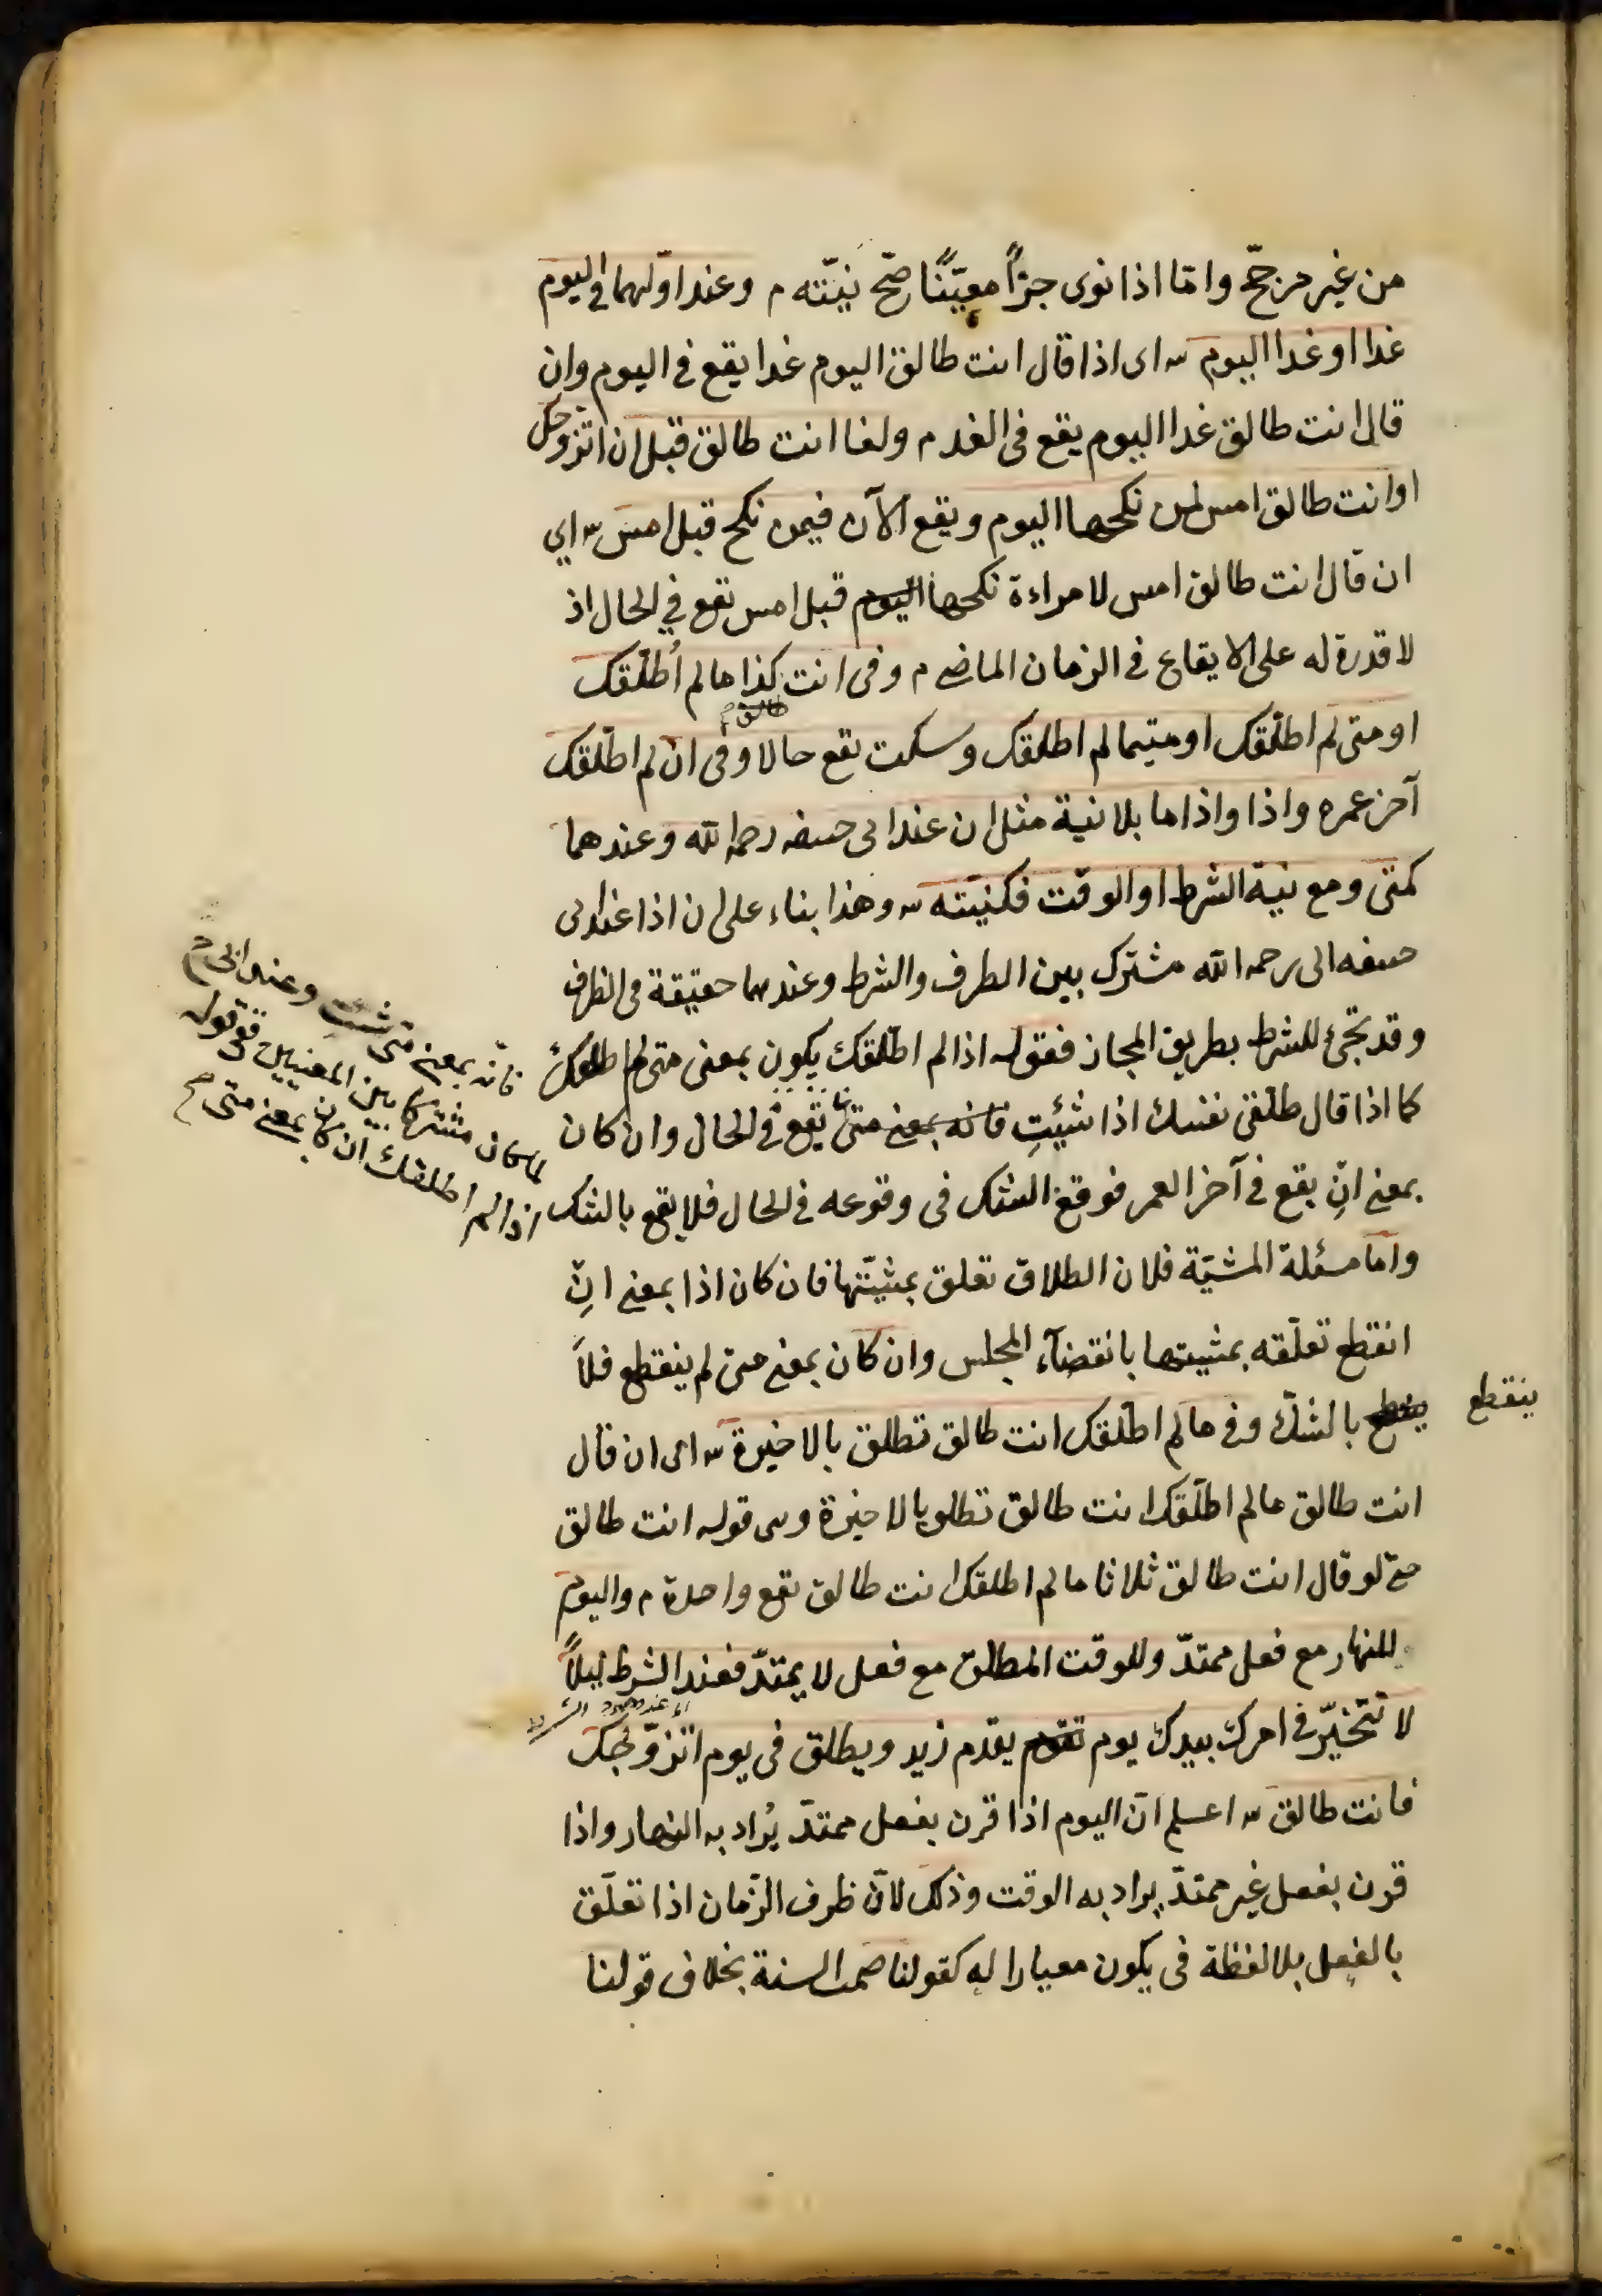 من غير مرجح واما اذا نوى جزأً معيّنًا صحّ نيّته م وعند اوّلهما فى اليوم
غدا او غدا اليوم ש اى اذا قال انت طالق اليوم غدا يقع فى اليوم وان
قال انت طالق غدا اليوم يقع فى الغد م ولغا انت طالق قبل ان اتزوجك
او انت طالق امس لمن نكحها اليوم ويقع الآن فيمن نكح قبل امس ש اي
ان قال انت طالق امس لامراءة نكحها اليوم قبل امس تقع في الحال اذ
لا قدرة له على الايقاع فى الزمان الماضى م وفى انت كذا ما لم أطلّقك
طالق م
او متى لم اطلّقك او متيما لم اطلقك وسكت يقع حالا وفى ان لم اطلّقك
آخر عمره واذا واذا ما بلا نية مثل ان عند ابى حنيفه رحمه الله وعندهما
كمتى ومع نية الشرط او الوقت فكنيّته ש وهذا بناء على ان اذا عند ابى
حنيفه الى رحمه الله مشترك بين الظرف والشرط وعندهما حقيقة فى الظرف
وقد تجئ للشرط بطريق المجاز فقوله اذا لم اطلّقك يكون بمعنى متى لم اطلقك
كما اذا قال طلّقى نفسك اذا شئتِ فانه بمعنى متى يقع فى الحال وان كان
بمعنى انّ يقع فى آخر العمر فوقع الشك فى وقوعه فى الحال فلا يقع بالشك
فانه بمعنى متى شئتِ وعند ابى ح
لما كان مشتركا بين المعنيين ففى قوله
اذا لم اطلقك ان كان بمعنى متى صح
واما مسئلة المشيّة فلان الطلاق تعلق بمشيّتها فان كان اذا بمعنى انّ
انقطع تعلّقه بمشيتها بانقضآء المجلس وان كان بمعنى متى لم ينقطع فلا
ينقطع
ينقطع بالشكّ وفى ما لم اطلّقك انت طالق تطلق بالاخيرة ש اى ان قال
انت طالق ما لم اطلّقك انت طالق تطلق بالاخيرة وهى قوله انت طالق
حتى لو قال انت طالق ثلاثا ما لم اطلقك انت طالق يقع واحدة م واليوم
للنهار مع فعل ممتدّ وللوقت المطلق مع فعل لا يمتدّ فعند الشرط ليلاً
اى عند وجود الشرط
لا تتخيّر فى امرك بيدك يوم تقدم يقدم زيد ويطلق فى يوم اتزوّجك
فانت طالق ש اعلم انّ اليوم اذا قرن بفعل ممتدّ يُراد به النهار واذا
قرن بفعل غير ممتدّ يراد به الوقت وذلك لانّ ظرف الزمان اذا تعلّق
بالفعل بلا لفظة فى يكون معيارا له كقولنا صمت السنة بخلاف قولنا